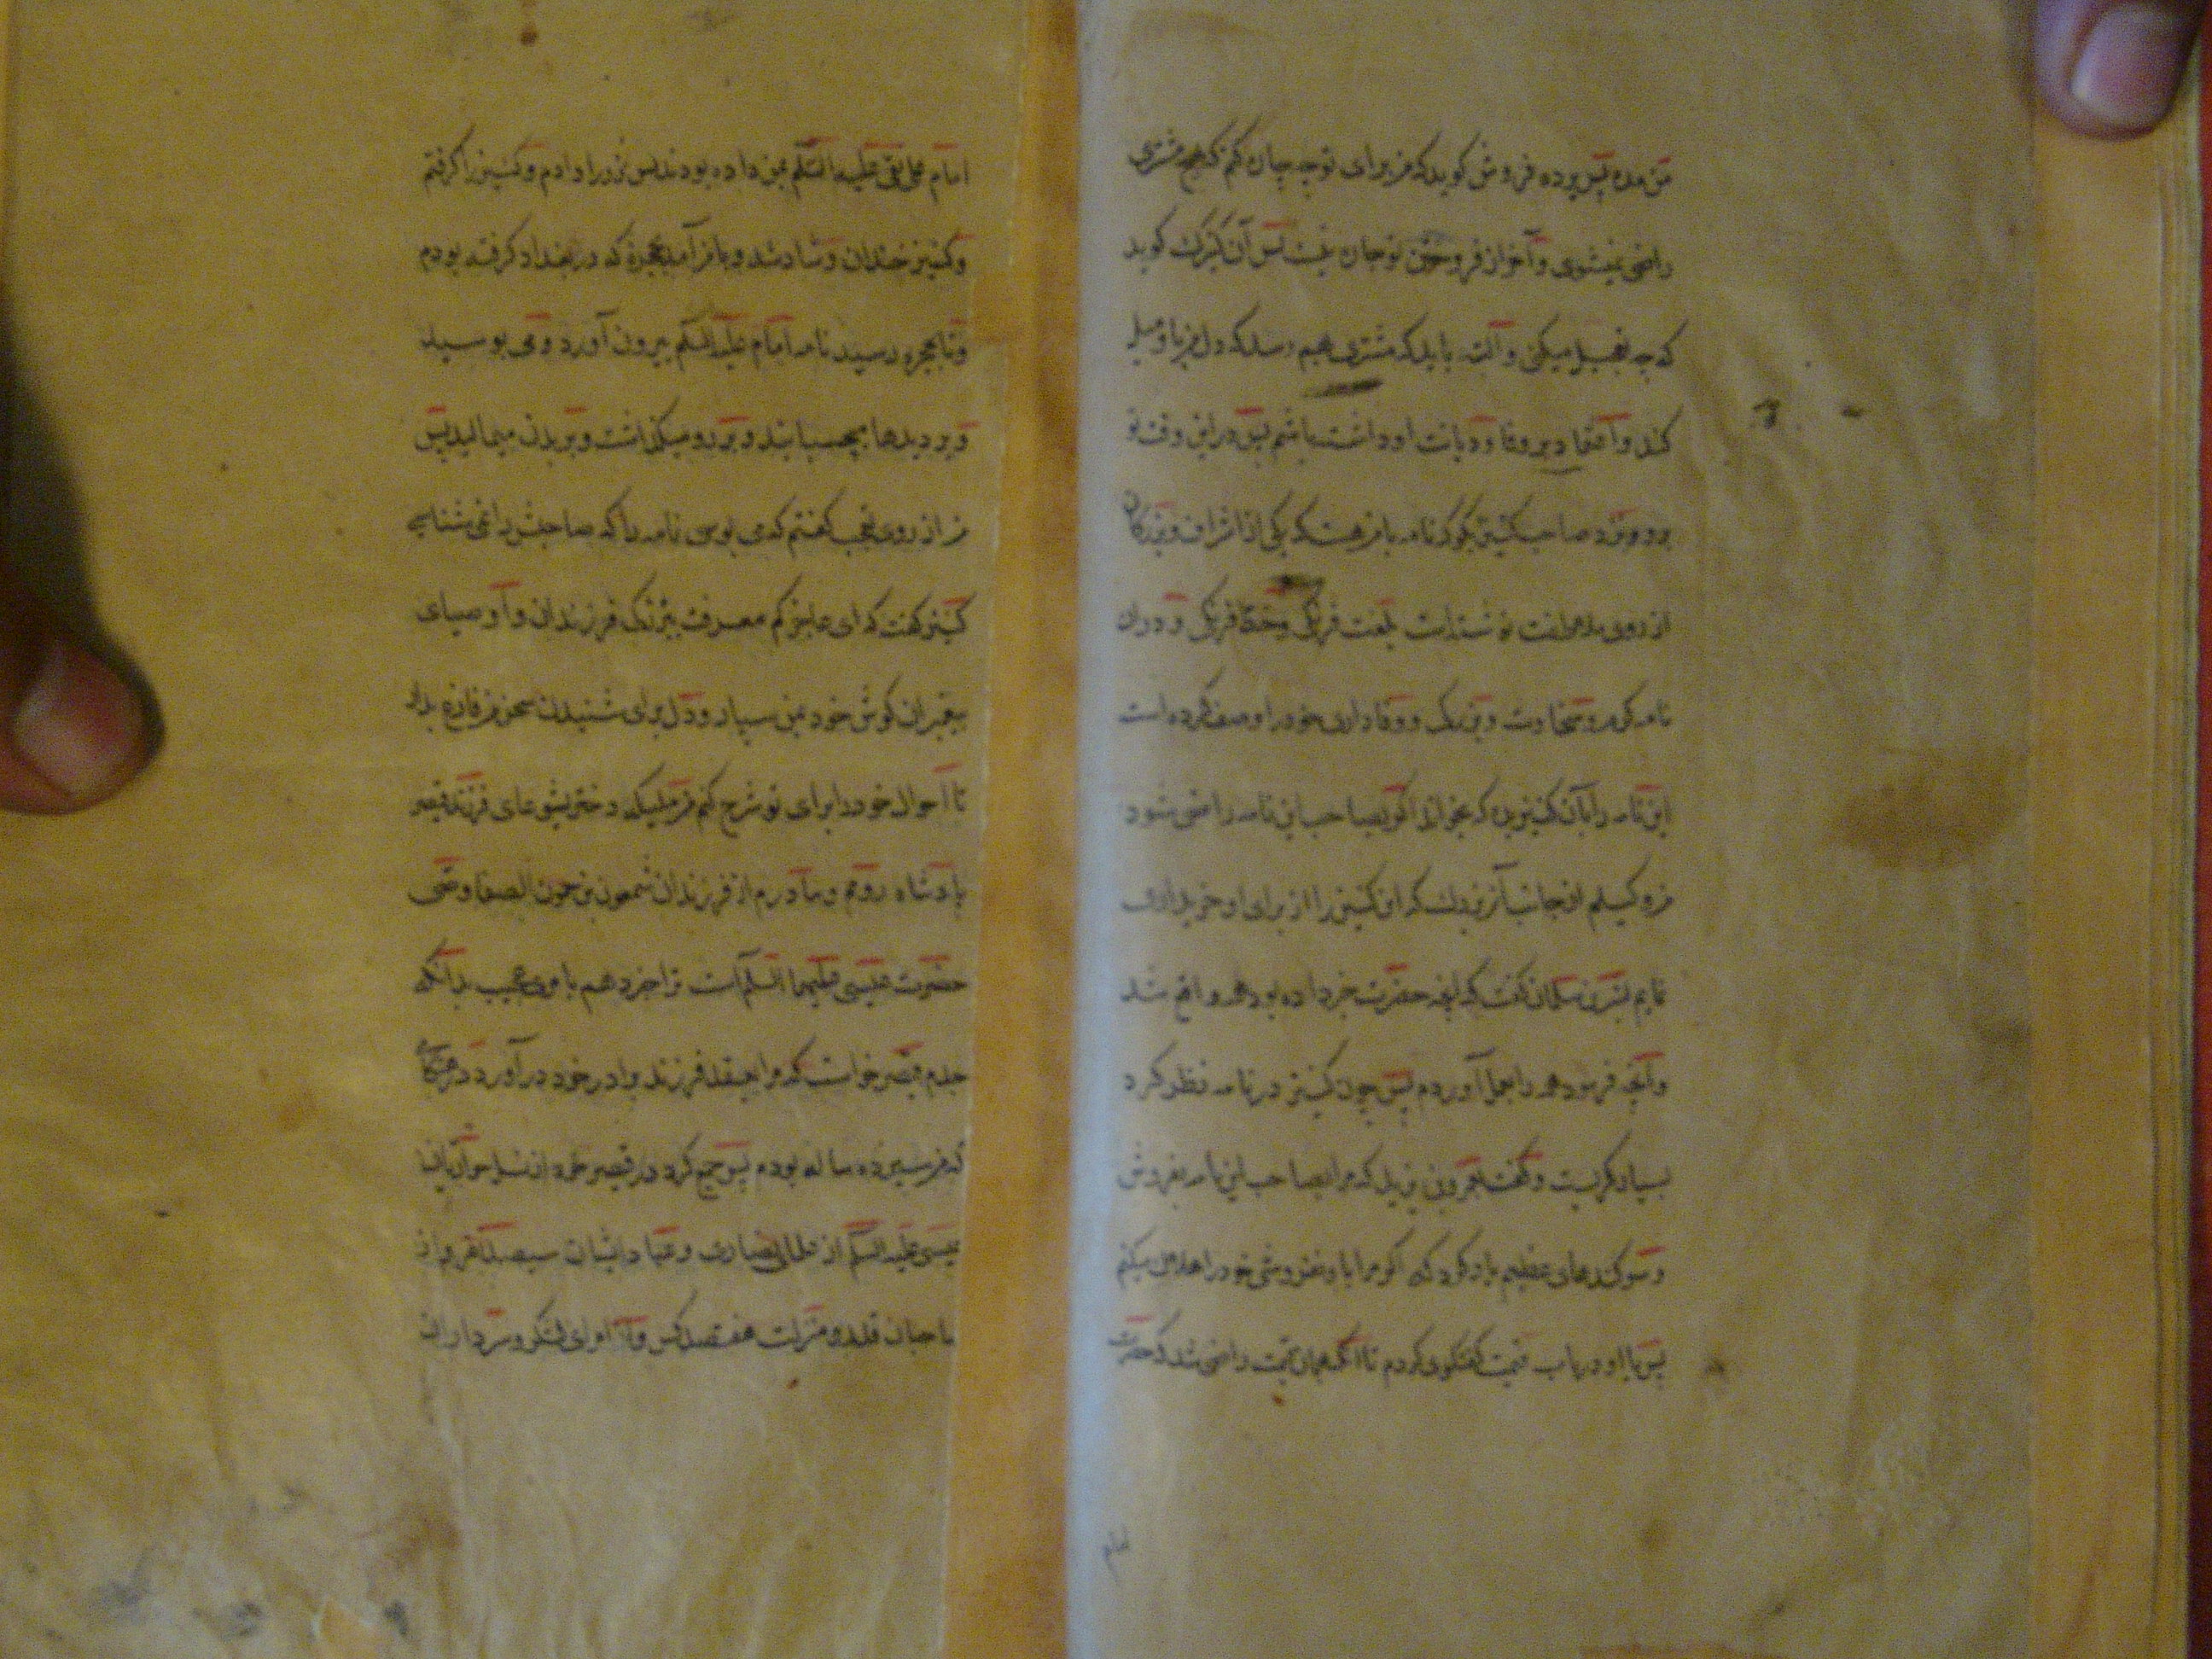 من مده پس برده فروش کوید که من برای تو چه چاره کنم که بهیچ مشتری
راضی نمیشوی و آخر از فروختن تو چاره نیست پس آن کنیزک کوید
که چه تعجیل میکنی و البته باید که مشتری بهم رسد که دل من باو میل
کند و اعتقاد بر وفا و دیانت او داشته باشم پس در این وقت تو
برو و نزد صاحب کنیز بکو که نامه با من هست که یکی از اشراف و بزرکان
از روی ملاطفت نوشته است بلغت فرنکی و خط فرنکی و در ان
نامه کرم و سخاوت و بزرکی و وفاداری خود را وصف کرده است
این نامه را بآن کنیز بده که بخواند اکر بصاحب این نامه راضی شود
من وکیلم از جانب آن بزرک که این کنیز را از برای او خریداری
نمایم بشر بن سلیمان کفت که آنچه حضرت خبر داده بود همه واقع شد
و آنچه فرموده همه را بعمل آوردم پس چون کنیز در نامه نظر کرد
بسیار کریست و کفت بعمرو بن یزید که مرا بصاحب این نامه بفروش
و سوکندهای عظیم یاد کرد که اکر مرا باو نفروشی خود را هلاک میکنم
پس با او در باب قیمت کفتکوی کردم تا آنکه بهمان قیمت راضی شد که حضرت
امام
امام علی نقی علیه السلم بمن داده بودند پس زر را دادم و کنیز را کرفتم
و کنیز خندان و شاد شد و با من آمد بحجره که در بغداد کرفته بودم
و تا بحجره رسید نامه امام علیه السلم بیرون آورد و می بوسید
و بر دیدها میچسبانید و بر رو میکذاشت و بر بدن میمالید پس
من از روی تعجب کفتم که می بوسی نامه را که صاحبش را نمی شناسی
کنیز کفت که ای عاجز کم معرفت ببزرکی فرزندان و اوصیای
پیغمبران کوش خود بمن سپار و دل برای شنیدن سخن من فارغ بدار
تا احوال خود را برای تو شرح کنم من ملیکه دختر یشوعای فرزند قیصر
پادشاه روم و مادرم از فرزندان شمعون بن حمون الصفا وصی
حضرت عیسی علیهما السلم است ترا خبر دهم بامری عجیب بدانکه
جدم قیصر خواست که مرا بعقد فرزند برادر خود درآورد در هنکامی
که من سیزده ساله بودم پس جمع کرد در قصر خود از نسل حواریان
عیسی علیه السلم از علمای نصاری و عباد ایشان سیصد نفر و از
صاحبان قدر و منزلت هفتصد کس و از امرای لشکر و سرداران